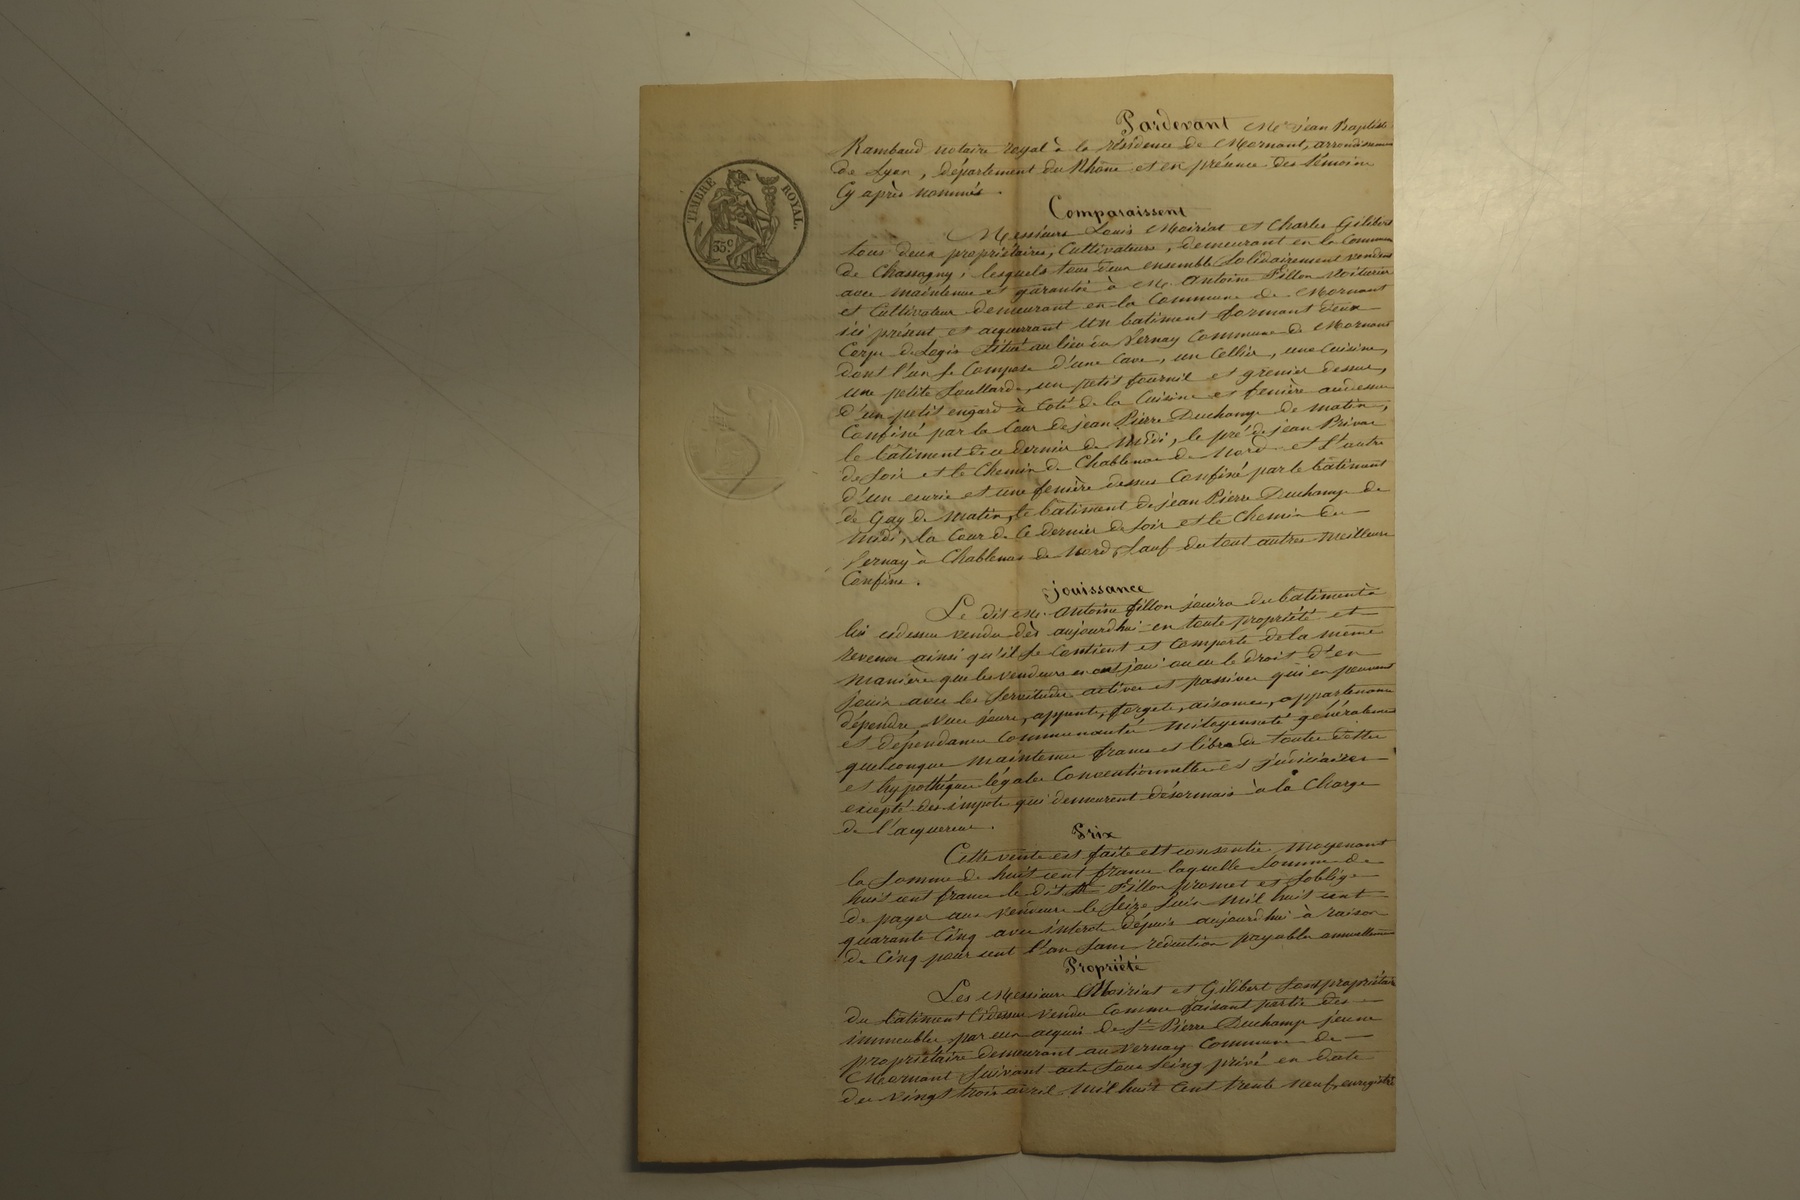 TIMBRE ROYAL.
35c
Pardevant Me jean Baptiste
Rambaud notaire royal à la résidence de Mornant, arrondissement
de Lyon, département du Rhône et en présence des témoins
Cy après nommés.
Comparaissent
Messieurs Louis Moiriat et Charles Gilibert
tous deux propriétaires, Cultivateurs, demeurant en la Commune
de Chassagny, lesquels tous deux ensemble Solidairement vendent
avec maintenue et garantie à M. Antoine Fillon voiturier
et Cultivateur demeurant en la Commune de Mornant
ici présent et acquerrant un batiment formant deux
Corps de Logis Situé au lieu du Vernay Commune de Mornant
dont l'un se Compose d'une Cave, un Cellier, une Cuisine,
une petite Souillarde, un petit fournil et grenier dessus,
d'un petit engard à Coté de la Cuisine et fenière audessus
Confiné par la Cour de jean Pierre Duchamp de matin,
le bâtiment de ce dernier de Midi, le pré de jean Privas
de Soir et le Chemin de Chablenas de Nord et l'autre
d'un ecurie et une fenière dessus Confiné par le bâtiment
de Gay de Matin, le bâtiment de jean Pierre Duchamp de
Midi, la Cour de Ce dernier de Soir et le Chemin du
Vernay à Chablenas de Nord, Sauf du tout autres meilleurs
Confins.
jouissance
Le dit M. Antoine fillon jouira du batiment à
lui cidessus vendu dès aujourdhui en toute propriété et
revenus ainsi qu'il Se Contient et Comporte de la même
manière que les vendeurs en ont joui ou eu le droit d'en
jouir avec les Servitudes actives et passives qui en peuvent
dépendre vues jours, appents, forgets, aisances, appartenances
et dépendances Communautés mitoyenneté généralement
quelconque maintenue franc et libre de toutes dettes
et hypothèques légales Conventionnelles et judiciaires
excepté des impots qui demeurent désormais à la Charge
de l'acquereur.
Prix
Cette vente est faite ett consentie Moyenant
la Somme de huit cent francs laquelle Somme de
huit cent francs le dit M. Fillon promet et Soblige
de payer aux vendeurs le Seize Juin Mil huit cent
quarante Cinq avec intérêts dépuis aujourdhui à raison
de Cinq pour cent l'an Sans réduction payables annuellement
Propriété
Les Messieurs Moiriat et Gilibert Sont propriétaires
du bâtiment Cidessus vendu Comme faisant partie des
immeubles par eux acquis de Sr Pierre Duchamp jeune
propriétaire demeurant au Vernay Commune de
Mornant Suivant acte Sous Seing privé en date
du vingt trois avril Mil huit Cent trente neuf, enregistré